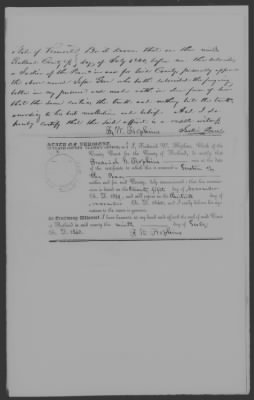 State of Vermont } Be it known that on the ninth
Rutland County } day of July 1840 before me the subscriber
a Justice of the Peace in and for said County, personally appeared
the above named
and made oath in due form of law
that the same contains the truth and nothing but the truth
according to his best recollection and belief. And I do
hereby certify that the said affiant is a credible witness
F. W. Hopkins Justice Peace
STATE OF VERMONT,
I, Frederick W. Hopkins, Clerk of the
County Court for the County of Rutland, do certify that
Frederick W. Hopkins was at the date
of the certificate to which this is annexed a Justice of
the Peace
within and for said County, duly commissioned; that his commission
was in hand on the first day of December
A. D. 1839, and expires on the thirtieth day of
November A. D. 1840, and I verily believe his sig-
nature to the same is genuine.
In Testimony Whereof, I have hereunto set my hand and affixed the seal of said Court
at Rutland in said county this ninth day of July
A. D. 1840.
F. W. Hopkins